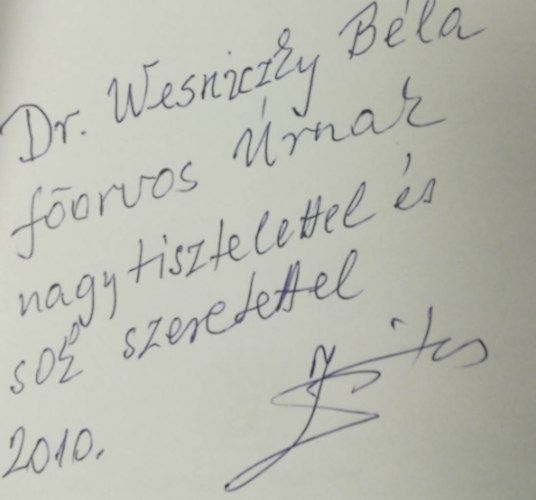 Dr. Wesniczky Béla
főorvos Úrnak
nagy tisztelettel és
sok szeretettel
2010.